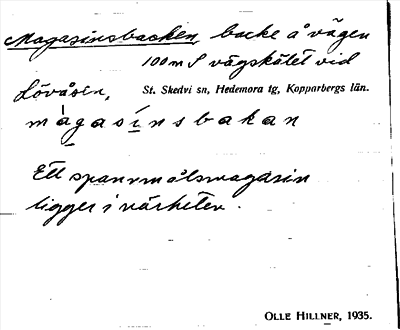 Magasinsbacken, backe å vägen
100 m S vägskälet vid
Lövåsen, St. Skedvi sn, Hedemora tg, Kopparbergs län.
màgasínsbakan
Ett spannmålsmagasin
ligger i närheten.
OLLE HILLNER, 1935.